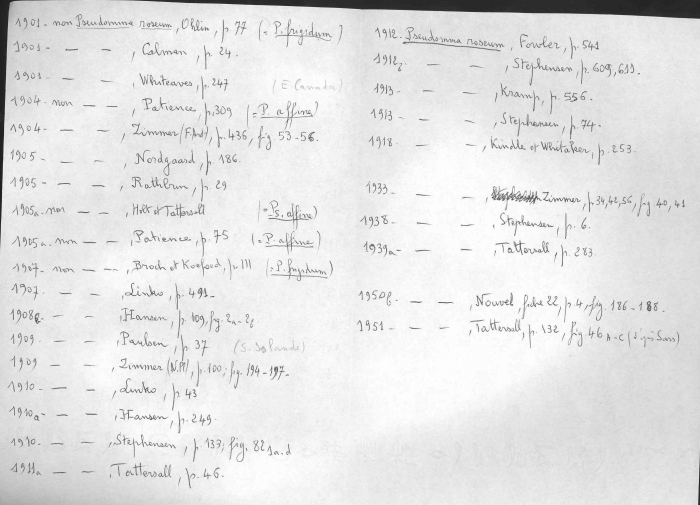 1901 - non Pseudomma roseum, Ohlin, p. 77 (= P. frigidum)
1901 - — — , Calman, p. 24.
1901 - — — , Whiteaves, p. 247 (E. Canada)
1904 - non — — , Patience, p. 309 (= P. affine)
1904 - — — , Zimmer, p. 436, fig 53-56.
1905 - — — , Nordgaard, p. 186.
1905 - — — , Rathbun, p. 29
1905a - non — — , Holt et Tattersall (= Ps. affine)
1905a - non — — , Patience, p. 75 (= P. affine)
1907 - non — — , Broch et Koefoed, p. 111 (= P. frigidum)
1907 - — — , Linko, p. 491 -
1908b - — — , Hansen, p. 109, fig. 2a - 2f
1909 - — — , Paulsen, p. 37 (S. Islande)
1909 - — — , Zimmer (N.Pl), p. 100; fig. 194-197-
1910 - — — , Linko, p. 43
1910a - — — , Hansen, p. 249.
1910. — — , Stephensen, p. 133; fig. 82 1a-d
1911a — — , Tattersall, p. 46.
1912. Pseudomma roseum, Fowler, p. 541
1912b - — — , Stephensen, p. 609, 611.
1913 - — — , Kramp, p. 556.
1913 - — — , Stephensen, p. 74 -
1918 - — — , Kindle et Whitaker, p. 253.
1933 - — — , Zimmer, p. 34, 42, 56, fig 40, 41
1938 - — — , Stephensen, p. 6.
1939a - — — , Tattersall, p. 283.
1950f - — — , Nouvel, fiche 22, p. 4, fig. 186-188.
1951 - — — , Tattersall, p. 132, fig 46 A-C (d'après Sars)